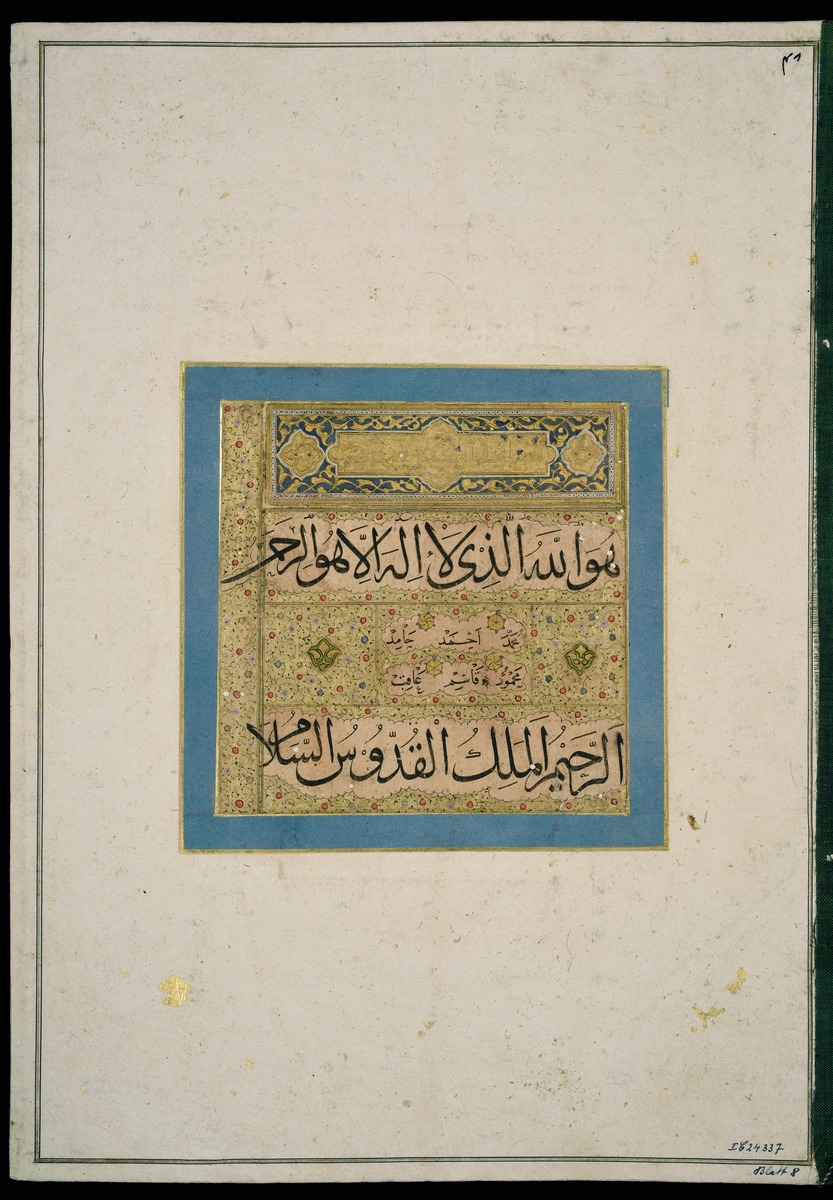 هُوَ اللّٰهُ الَّذِى لَا اِلٰهَ اِلَّا هُوَ الرَّحْمٰن
مُحَمَّدٌ اَحْمَد حَامِد
مَحْمُودٌ قَاسِم عَاقِب
اَلرَّحِيْمُ اَلْمَلِكُ الْقُدُّوسُ السَّلَامُ
I 24337
Blatt 8